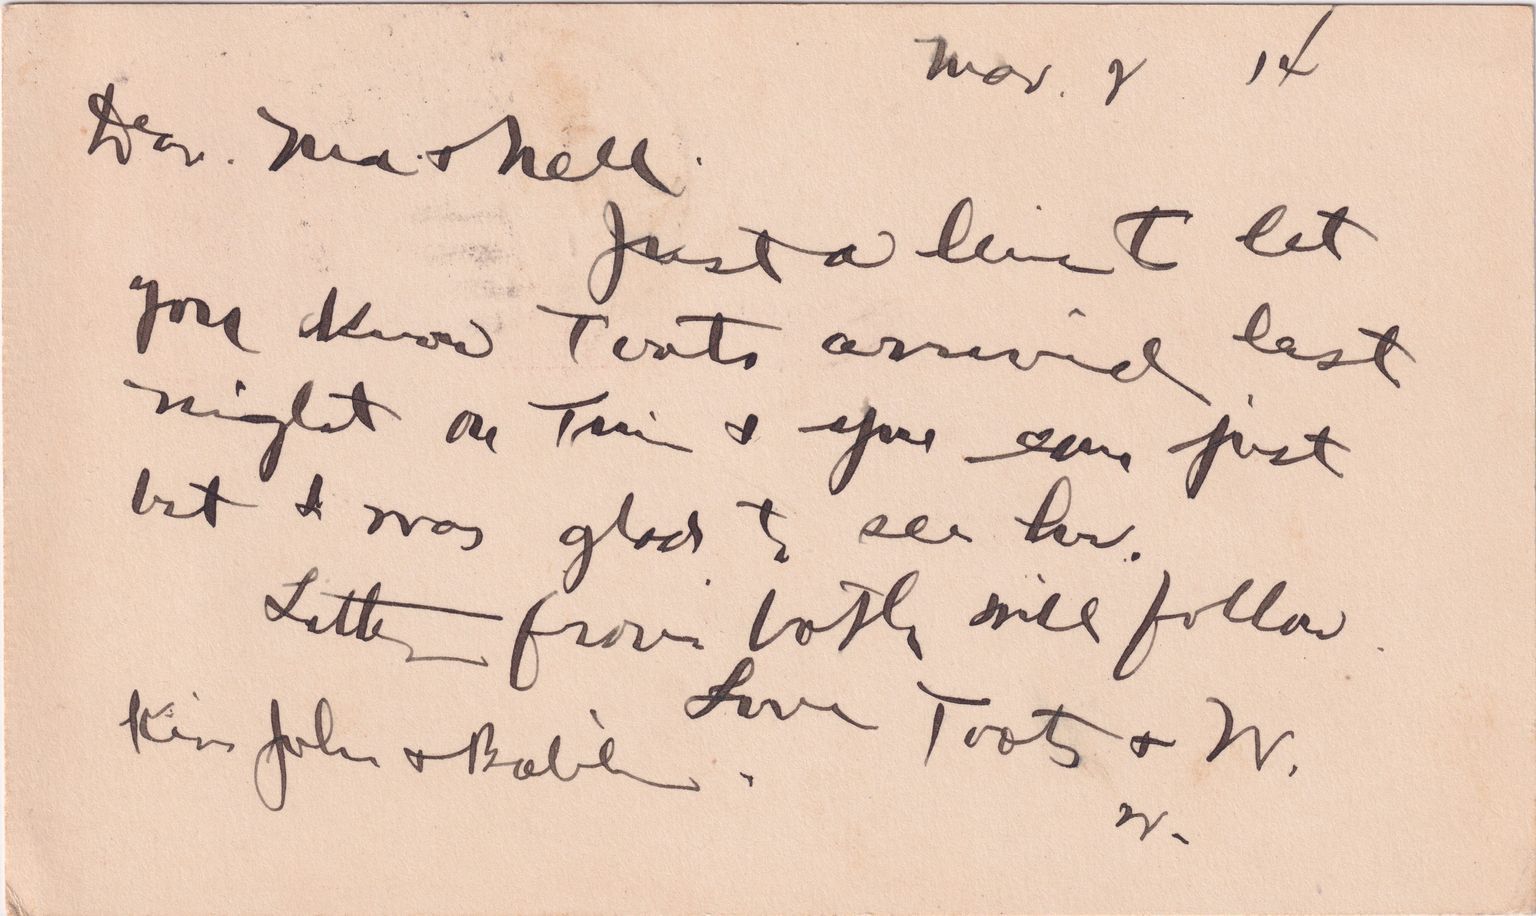 Mar. 8 14
Dear. Ma & Nell.
Just a line T let
you know Toots arrived last
night on Time & you can just
bet I was glad to see her.
Letter from both will follow.
Love Toots & W.
Kiss John & Babie.
W.